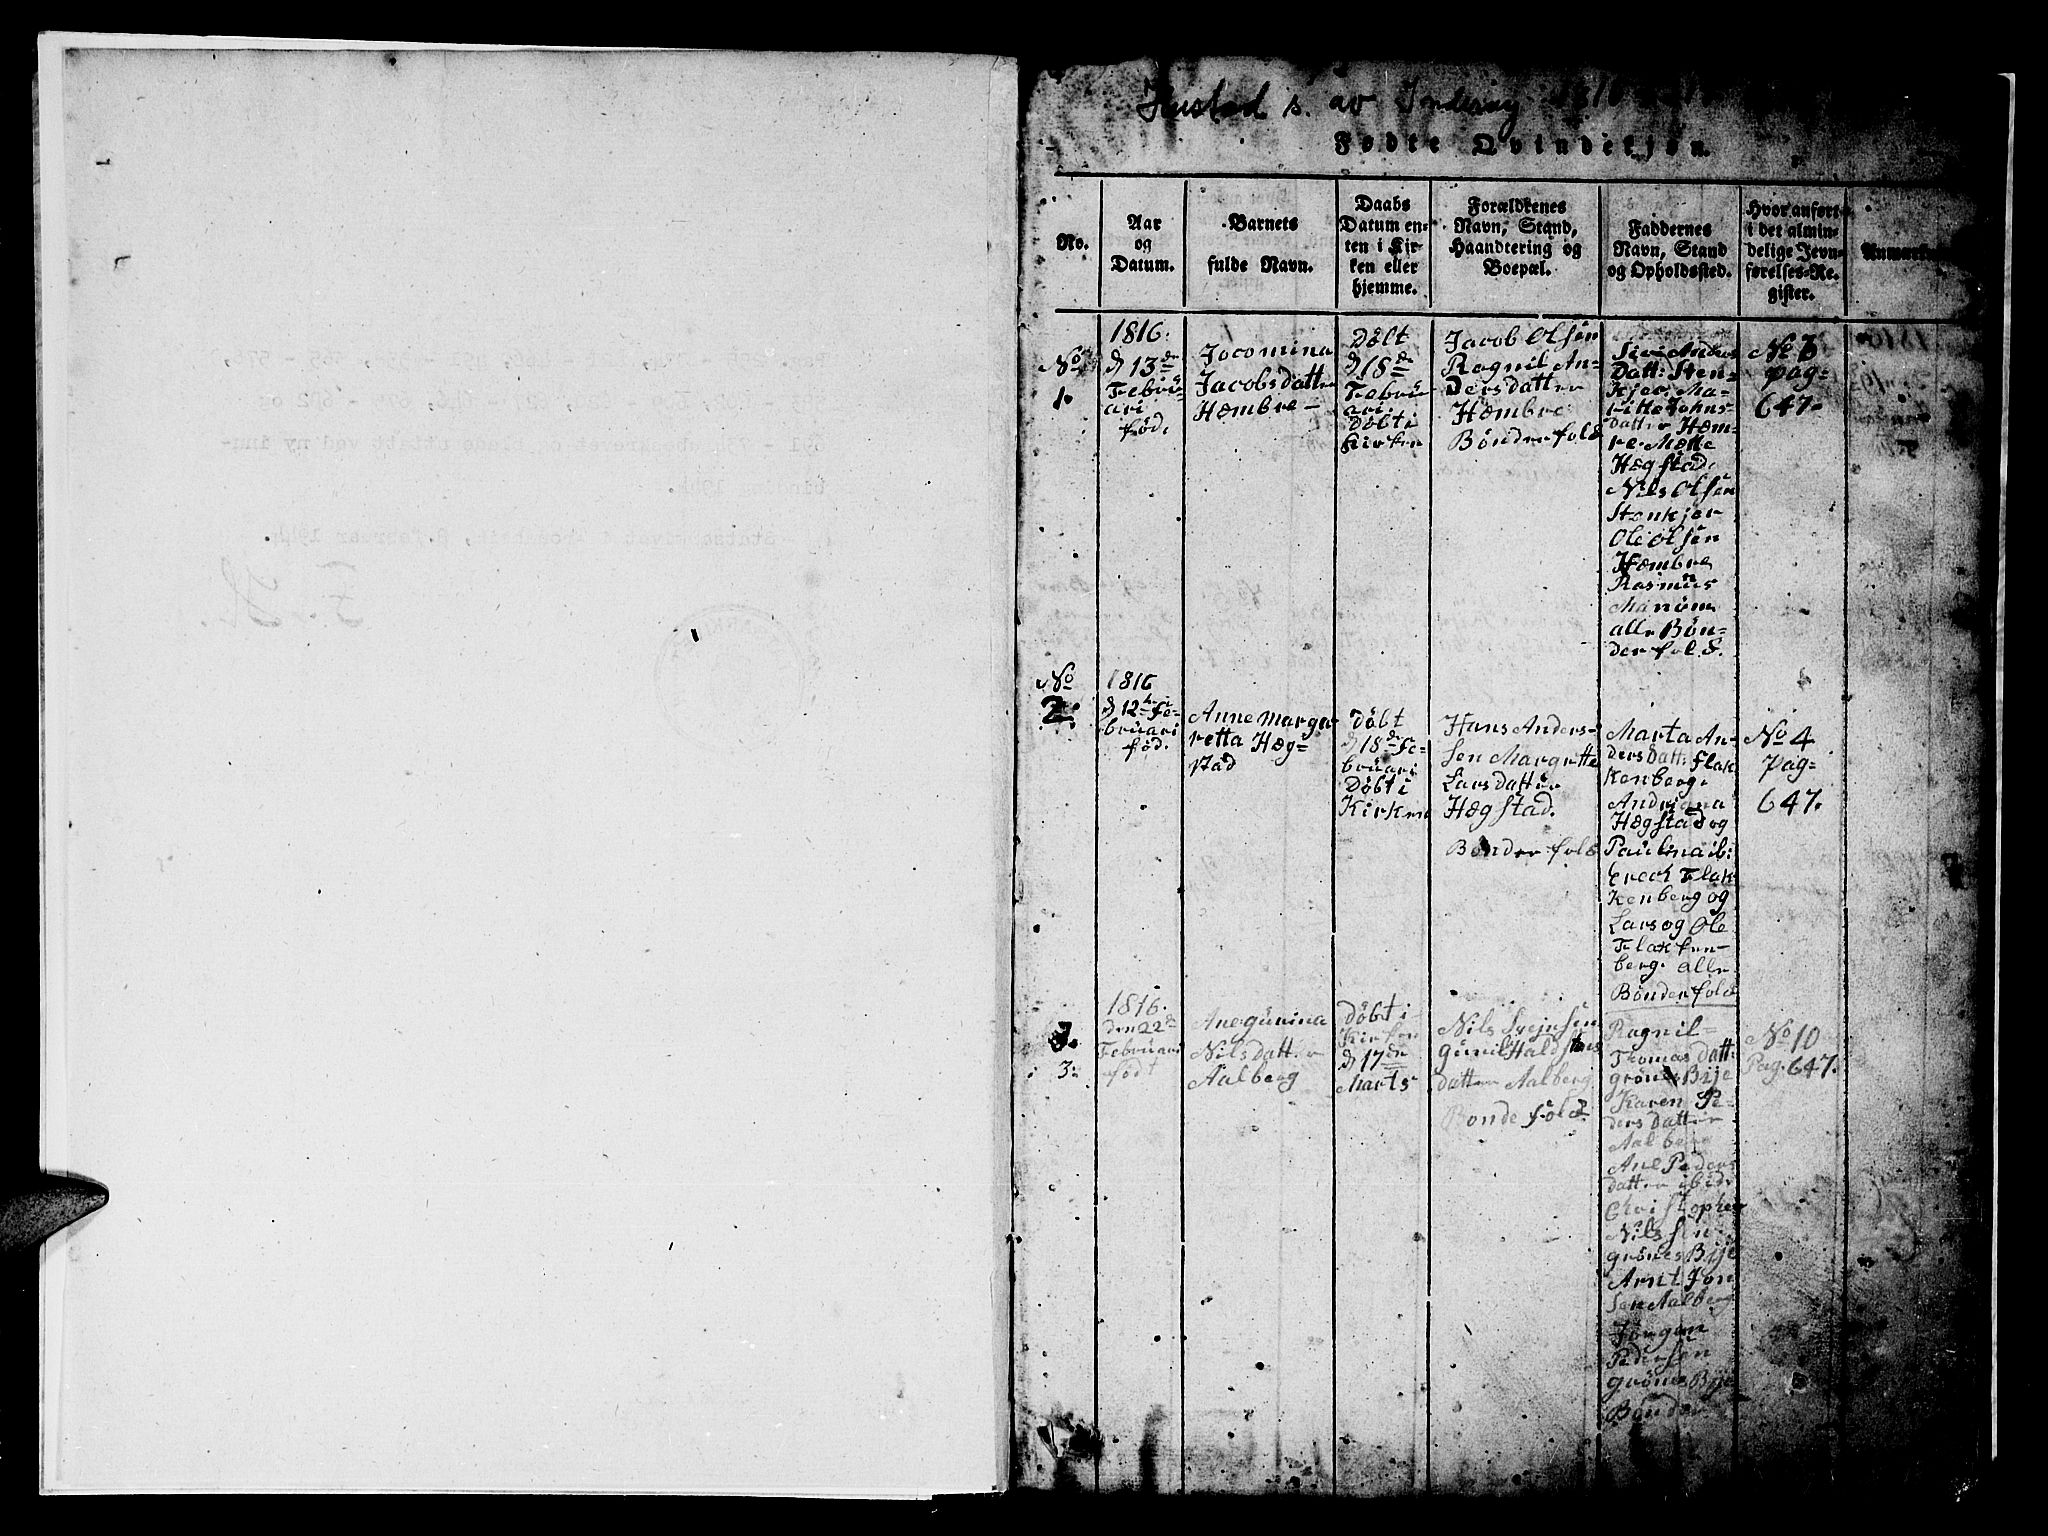 Hustad s. av Inderøy 1816
Fødte Qvindekjøn.
No.
Aar
og
Datum.
Barnets
fulde Navn.
Daabs
Datum en-
ten i Kir-
ken eller
hjemme.
Forældrenes
Navn, Stand,
Haandtering og
Boepæl.
Faddernes
Navn, Stand
og Opholdssted.
Hvor anført
i det almin-
delige Jevn-
førelses-Re-
gister.
No
1.
1816.
d 13de
Febru-
ari
fød.
Jocomina
Jacobsdatter
Hæmbre-
Døbt
d 18de
Febru-
ari
Døbt i
Kirken
Jacob Olsen
Ragnil An-
dersdatter
Hæmbre
Bønderfolk
Siri Anders
Datt: Sten-
kjer Ma-
ritte Johns-
datter Hæm-
re Mette
Hægstad.
Nils Olsen
Stenkjer
Ole Olsen
Hæmbre
Rasmus
alle Bøn-
derfolk.
No 3
pag-
647.
No
2.
1816
d 12te Fe-
bruari
fød.
Anne Marga-
retta Hæg-
stad
Døbt
d 18de Fe-
bruari
Døbt i
Kirken
Hans Anders-
sen Margrette
Larsdatter
Hægstad.
Bønderfolk
Marta An-
dersdatt: Flak
kenberg.
Andrigna
Hægstad og
Paulina ib:
Ereck Flak
kenberg og
Lars og Ole
Flakken-
berg. alle
Bønderfolk
No 4
pag-
647.
3.
3.
1816.
den 22d
Februari
født
Anegunina
Nilsdatter
Aalberg
Døbt i
Kirken
d 17de
Marts
Nils Svejnsen
Gunil Haldstens
datter Aalberg
Bondefolk
Ragnil
Thomasdatt:
grønesBye
Karen Pe-
dersdatter
Aalberg
Ane Peders
datter ibid:
Christopher
Nilssen
grønesBye
Arnt Jon
sen Aalberg
Jørgan
Pedersen
grønesBye
Bønder
No 10
Pag. 647.